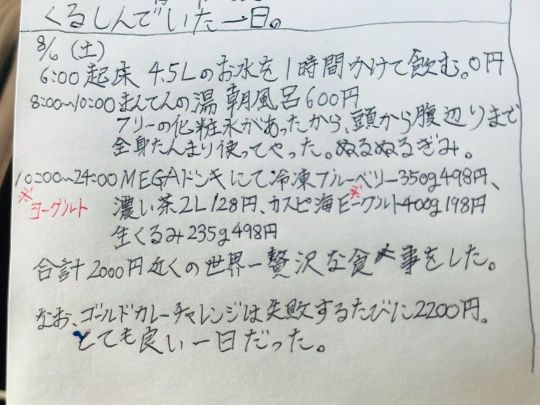 くるしんでいた一日。
8/6 (土)
6:00 起床 4.5Lのお水を1時間かけて飲む。0円
8:00〜10:00 まんてんの湯 朝風呂 600円
フリーの化粧水があったから、頭から腹辺りまで
全身たんまり使ってやった。ぬるぬるぎみ。
10:00〜24:00 MEGAドンキにて冷凍ブルーベリー350g498円、
※ヨーグルト
濃い茶2L128円、カスピ海※ヨーグルト400g198円
生くるみ235g498円
合計2000円近くの世界一贅沢な食事をした。
なお、ゴールドカレーチャレンジは失敗するたびに2200円。
とても良い一日だった。